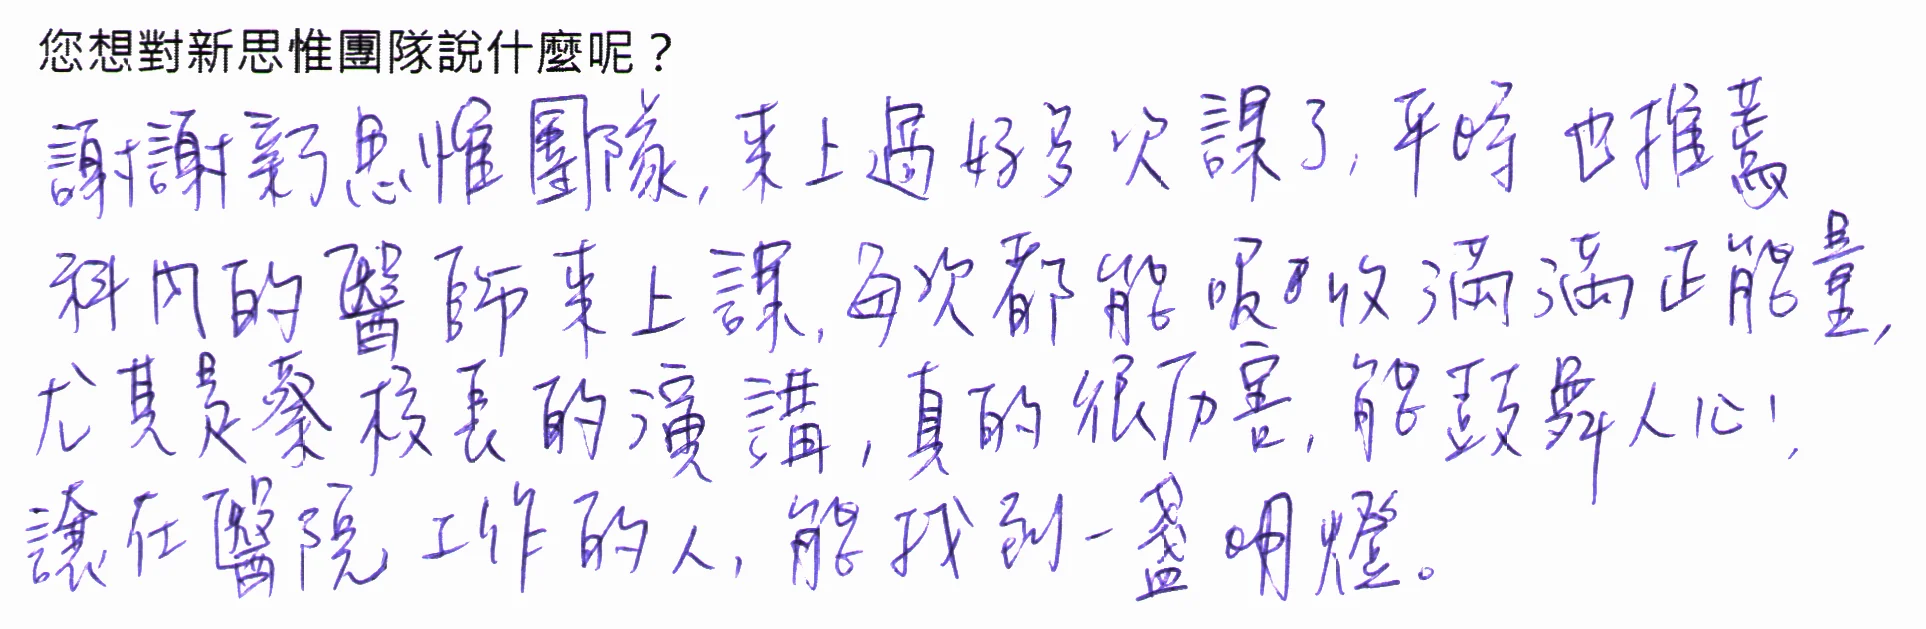 您想對新思惟團隊說什麼呢？
謝謝新思惟團隊,來上過好多次課了,平時也推薦
科內的醫師來上課,每次都能吸收滿滿正能量,
尤其是蔡校長的演講,真的很厉害,能鼓舞人心,
讓在醫院工作的人,能找到一盞明燈。